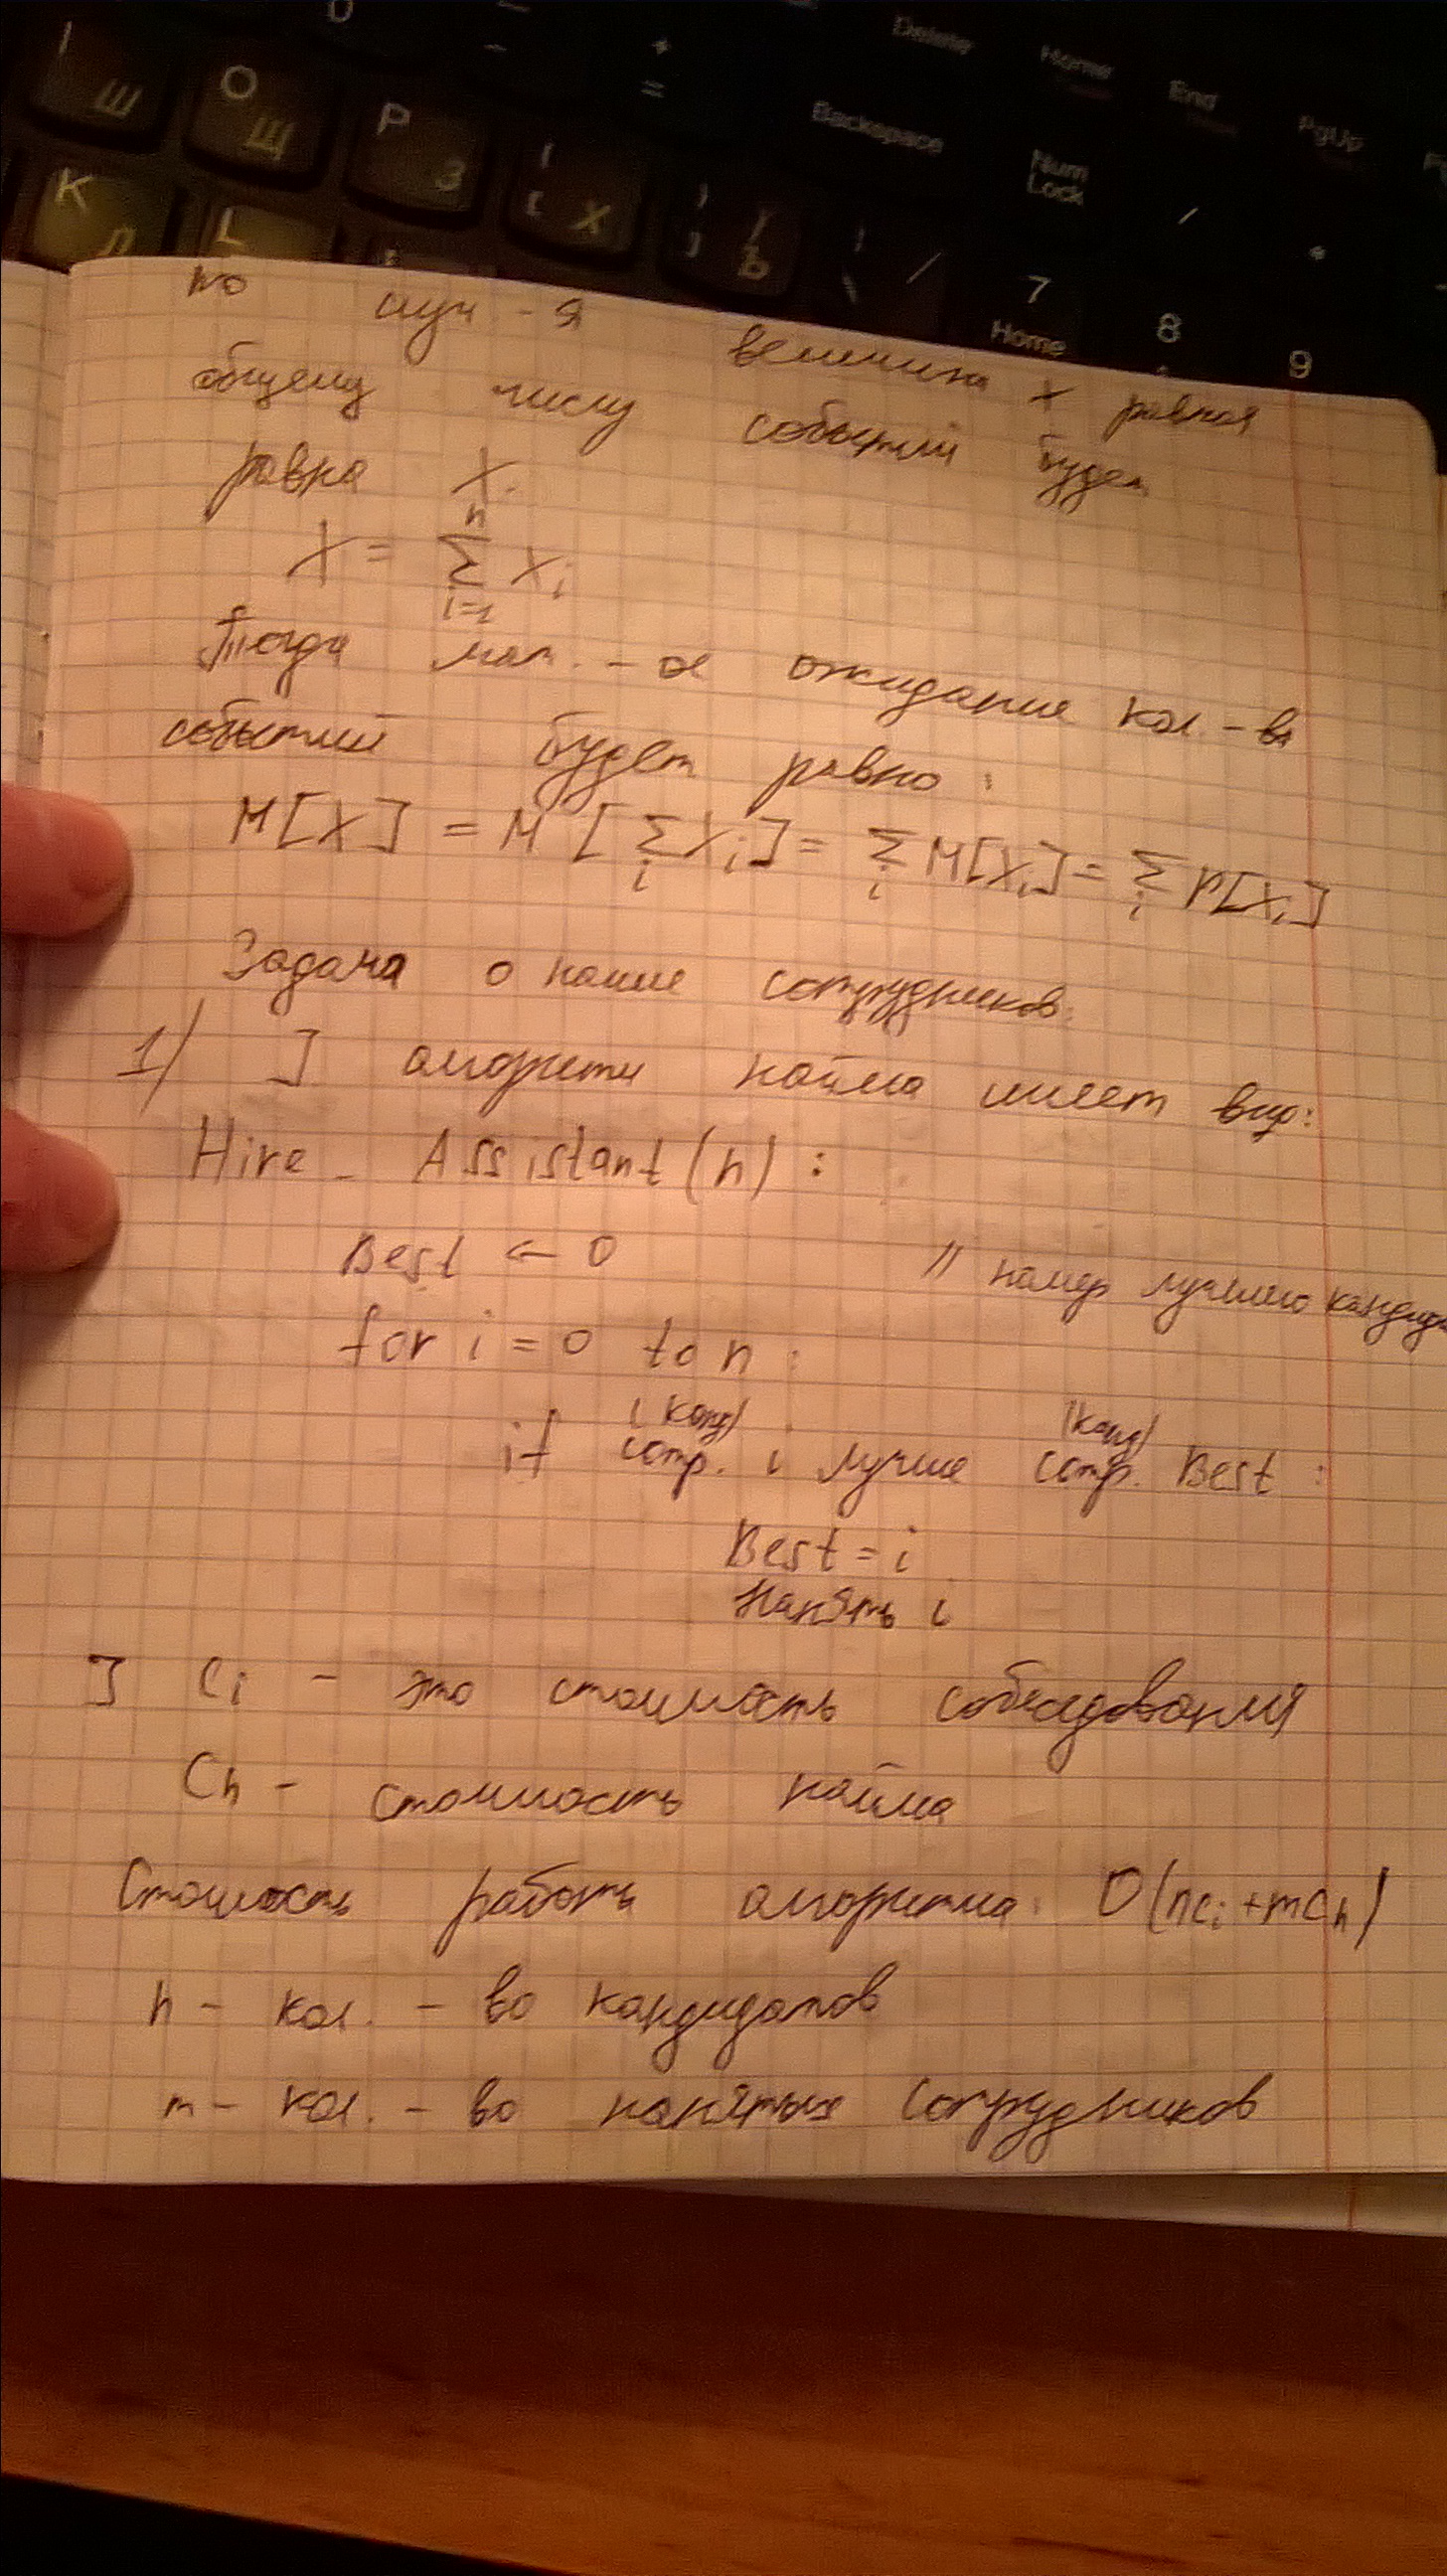 D
Delete
Home
End
PgUp
I Ш
O Щ
P З
+ =
Backspace
Num Lock
/
*
K Л
L
{ [ Х
} ] Ъ
| \ /
7 Home
8
9
то случ-я величина X равная
общему числу событий будет
равна X.
X = ∑ⁿᵢ₌₁ Xᵢ
Тогда мат.-ое ожидание кол.-ва
событий будет равно:
M[X] = M[∑ᵢ Xᵢ] = ∑ᵢ M[Xᵢ] = ∑ᵢ P[Xᵢ]
Задача о найме сотрудников.
1) ] алгоритм найма имеет вид:
Hire_Assistant(n):
Best ← 0 // номер лучшего кандида
for i = 0 to n:
(канд) (канд)
if сотр. i лучше сотр. Best:
Best = i
Нанять i
] Ci - это стоимость собеседования
Ch - стоимость найма
Стоимость работы алгоритма: O(nci + mch)
n - кол.-во кандидатов
m - кол.-во нанятых сотрудников